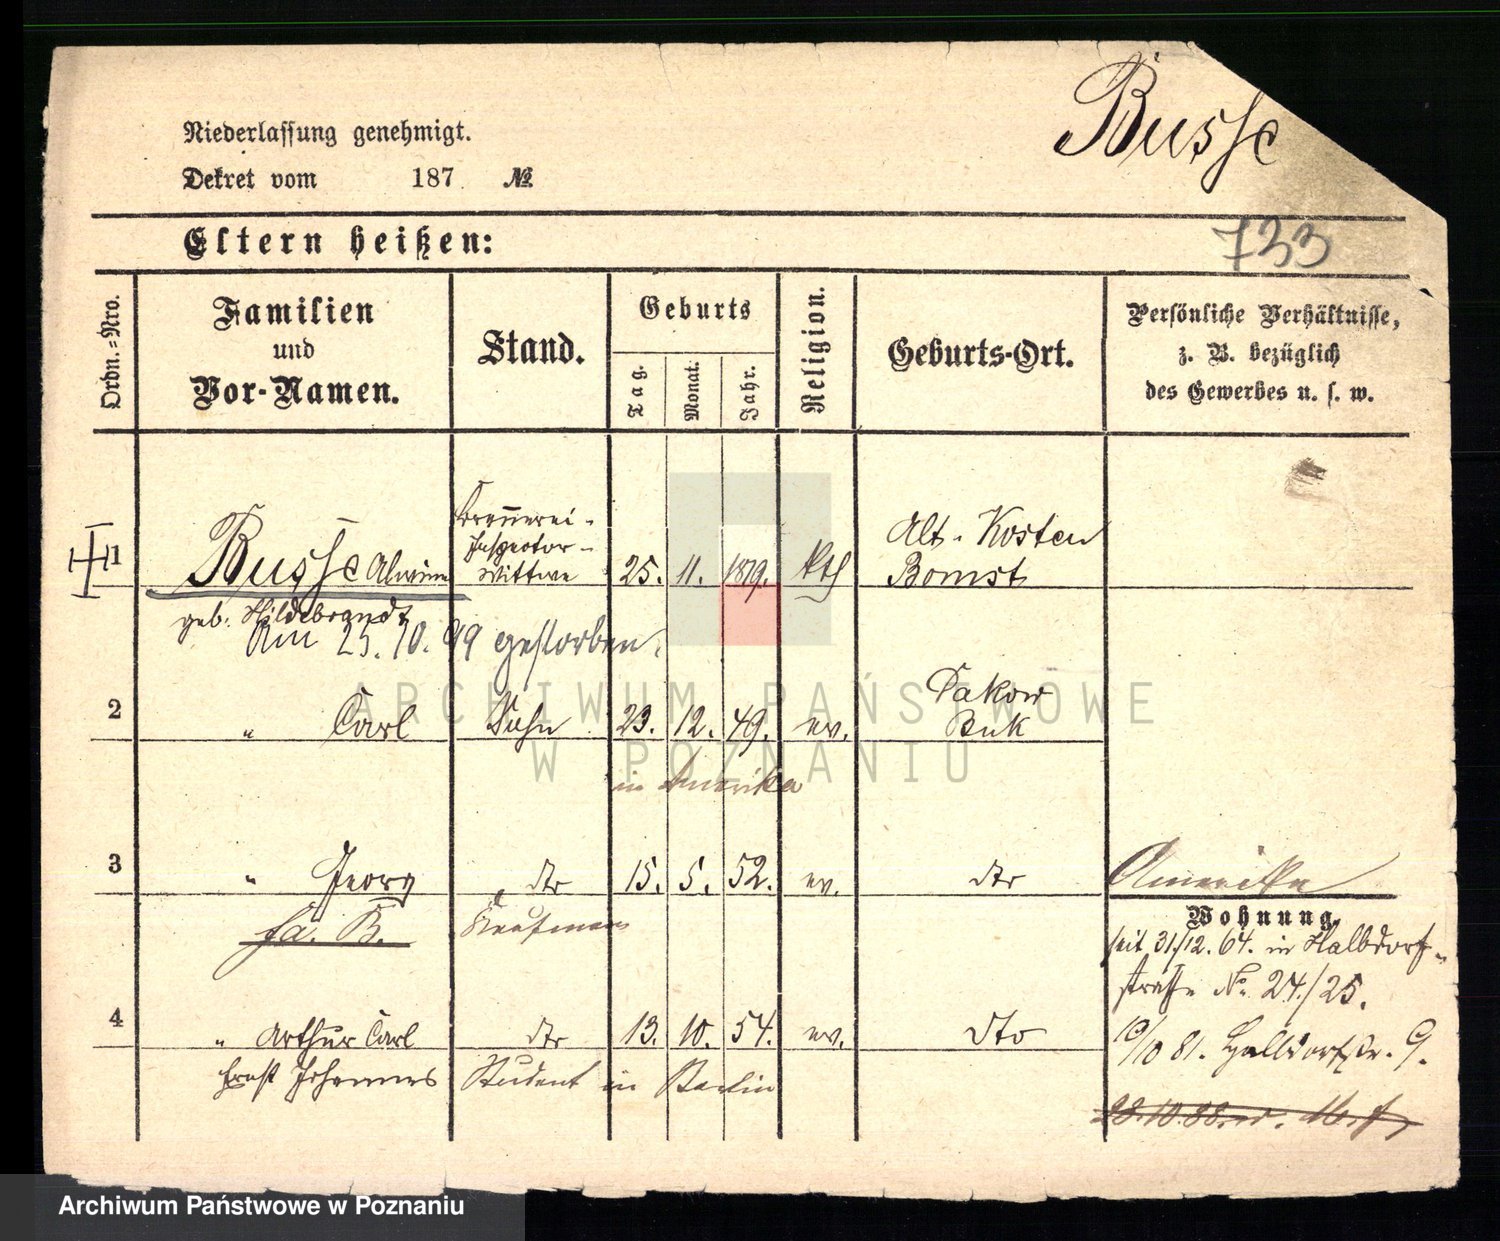 Busse
Niederlassung genehmigt.
Dekret vom 187 №
Eltern heißen:
733
Ordn.=Nro.
Familien
und
Vor-Namen.
Stand.
Geburts
Tag.
Monat.
Jahr.
Religion.
Geburts-Ort.
Persönliche Verhältnisse,
z. B. bezüglich
des Gewerbes u. s. w.
1
Busse Alwine
geb. Hildebrandt
Brennerei-
Inspector-
Wittwe
25. 11. 1819. kth
Alt-Kosten
Bomst
Am 25. 10. 99 gestorben.
2
" Carl
Sohn
23. 12. 49. ev.
Dakow
Buk
in Amerika
3
" Georg
dto
15. 5. 52. ev.
dto
Amerika
fa. B.
Kaufmann
Wohnung.
seit 31/12. 64. in Halbdorf-
straße No. 24./25.
4
" Arthur Carl
Ernst Johannes
dto
13. 10. 54. ev.
dto
10/10 81. Halbdorfstr. 9.
Student in Berlin
28.10.88.
ARCHIWUM PAŃSTWOWE
W POZNANIU
Archiwum Państwowe w Poznaniu